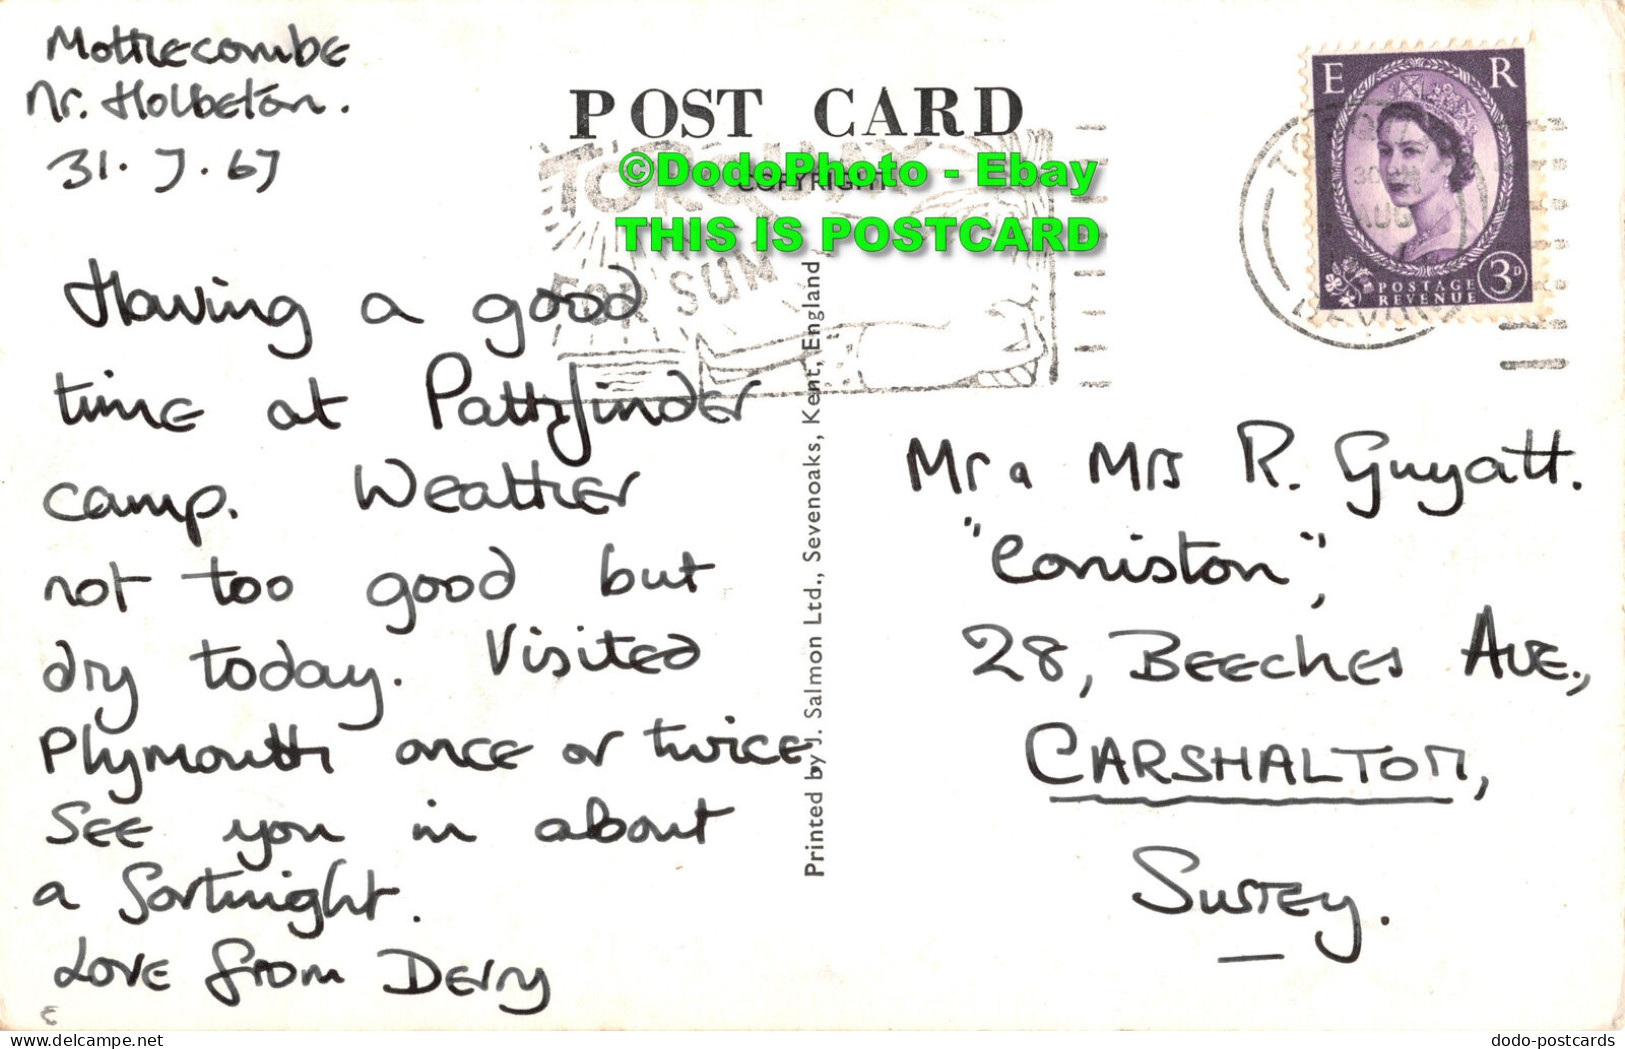 Mothecombe
Nr. Holbeton.
31. 7. 67
POST CARD
COPYRIGHT
©DodoPhoto - Ebay
THIS IS POSTCARD
TORQUAY
FOR SUN
E R
POSTAGE
REVENUE
3D
AUG
DEVON
Having a good
time at Pathfinder
camp. Weather
not too good but
dry today. Visited
Plymouth once or twice
See you in about
a fortnight.
Love from Derry
Printed by J. Salmon Ltd., Sevenoaks, Kent, England
Mr & Mrs R. Guyatt.
"Coniston",
28, Beeches Ave.,
CARSHALTON,
Surrey.
delcampe.net
dodo-postcards